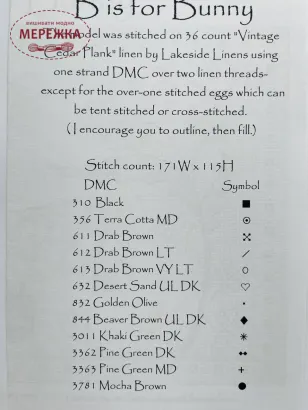 B is for Bunny
вишивати модно
МЕРЕЖКА
Model was stitched on 36 count "Vintage
Cedar Plank" linen by Lakeside Linens using
one strand DMC over two linen threads-
except for the over-one stitched eggs which can
be tent stitched or cross-stitched.
(I encourage you to outline, then fill.)
Stitch count: 171W x 115H
DMC Symbol
310 Black ■
356 Terra Cotta MD ⊙
611 Drab Brown
612 Drab Brown LT /
613 Drab Brown VY LT O
632 Desert Sand UL DK ♡
832 Golden Olive •
844 Beaver Brown UL DK ◆
3011 Khaki Green DK ✳
3362 Pine Green DK ◆◆
3363 Pine Green MD +
3781 Mocha Brown ●